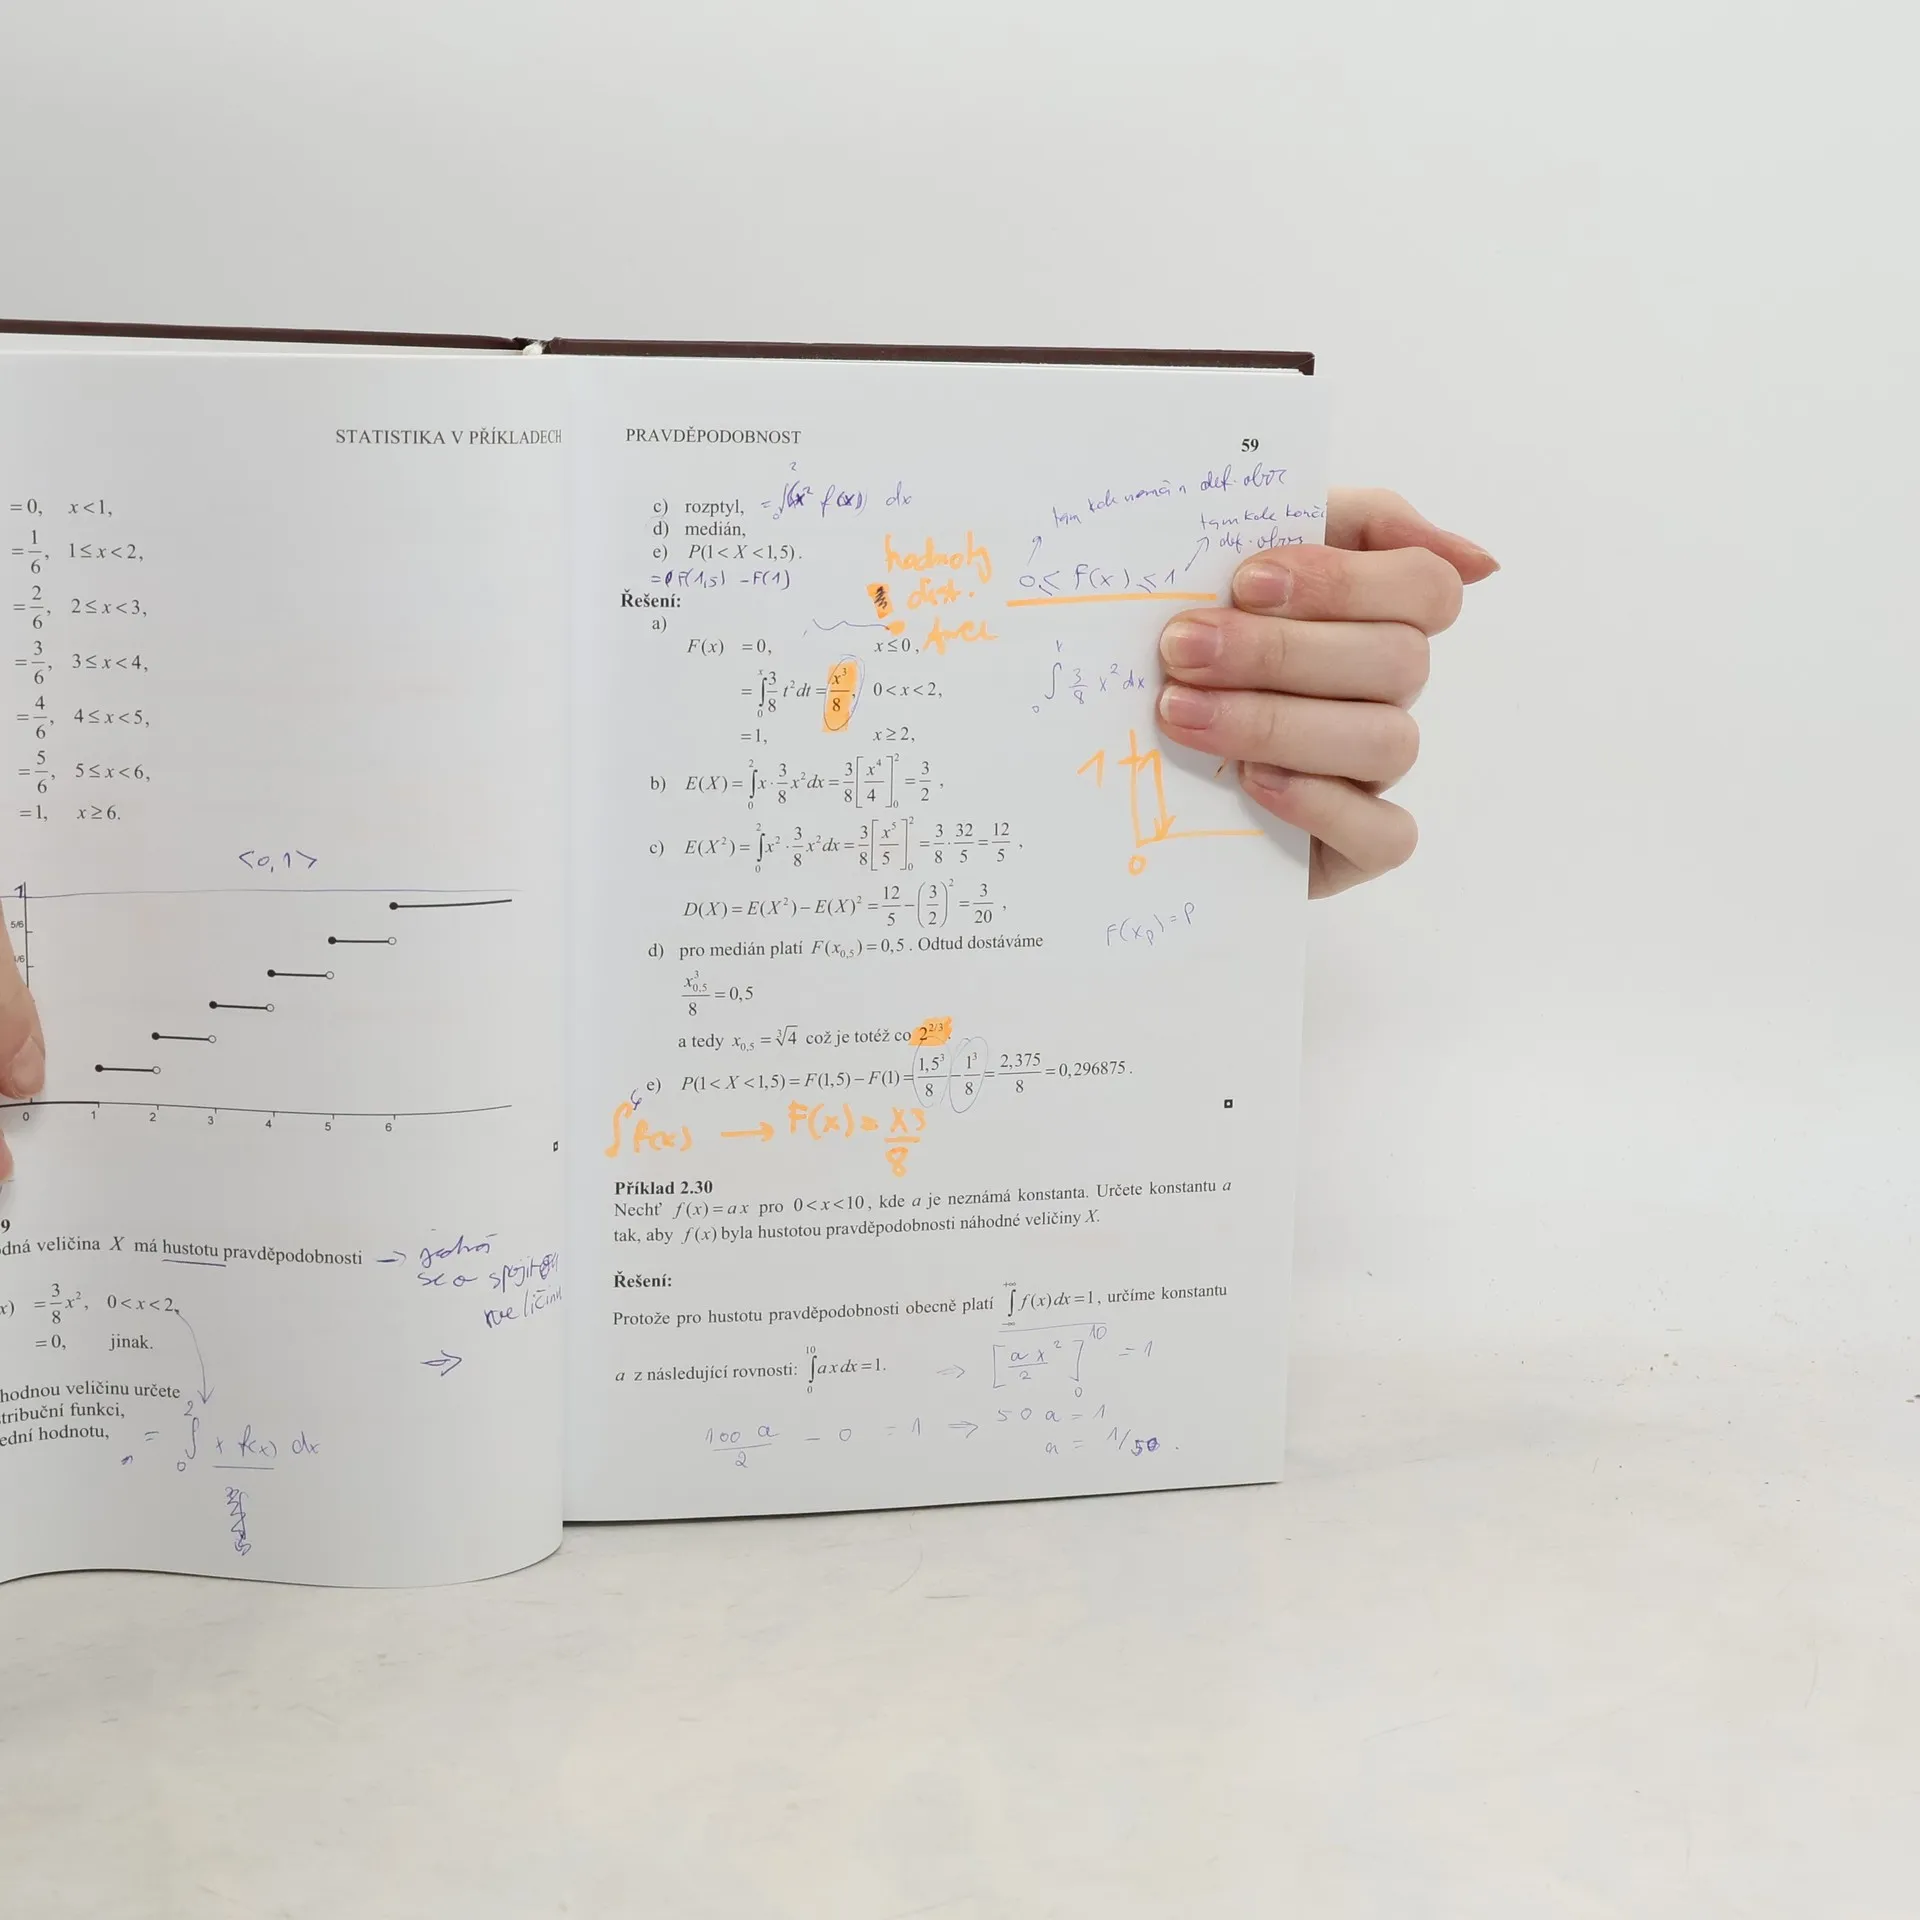 STATISTIKA V PŘÍKLADECH
=0, x<1,
=1/6, 1≤x<2,
=2/6, 2≤x<3,
=3/6, 3≤x<4,
=4/6, 4≤x<5,
=5/6, 5≤x<6,
=1, x≥6.
<0,1>
1
5/6
4/6
0 1 2 3 4 5 6
9
dná veličina X má hustotu pravděpodobnosti →
se o
x) =3/8x², 0<x<2,
=0, jinak.
⇒
hodnou veličinu určete
tribuční funkci,
ední hodnotu, = ∫₀² x f(x) dx
PRAVDĚPODOBNOST
59
c) rozptyl, = ∫₀² x² f(x) dx
d) medián,
e) P(1<X<1,5).
= F(1,5) – F(1)
tam kde def. obor
tam kde končí
def. obor
0 ≤ F(x) ≤ 1
hodnoty
dist.
Řešení:
a)
F(x) =0, x≤0,
=∫₀ˣ 3/8 t²dt = x³/8, 0<x<2,
=1, x≥2,
3/8 x² dx
1
0
b) E(X)=∫₀² x·3/8x²dx=3/8[x⁴/4]₀²=3/2,
c) E(X²)=∫₀² x²·3/8x²dx=3/8[x⁵/5]₀²=3/8·32/5=12/5,
D(X)=E(X²)–E(X)²=12/5–(3/2)²=3/20,
d) pro medián platí F(x₀,₅)=0,5. Odtud dostáváme
F(xₚ)=P
x³₀,₅/8=0,5
a tedy x₀,₅=∛4 což je totéž co 2^(2/3).
e) P(1<X<1,5)=F(1,5)–F(1)=1,5³/8–1³/8=2,375/8=0,296875.
∫f(x) → F(x)= x3/8
Příklad 2.30
Nechť f(x)=ax pro 0<x<10, kde a je neznámá konstanta. Určete konstantu a
tak, aby f(x) byla hustotou pravděpodobnosti náhodné veličiny X.
Řešení:
Protože pro hustotu pravděpodobnosti obecně platí ∫₋∞⁺∞ f(x)dx=1, určíme konstantu
a z následující rovnosti: ∫₀¹⁰ axdx=1. ⇒ [ax²/2]₀¹⁰ = 1
100a/2 – 0 = 1 ⇒ 50a = 1
a = 1/50.